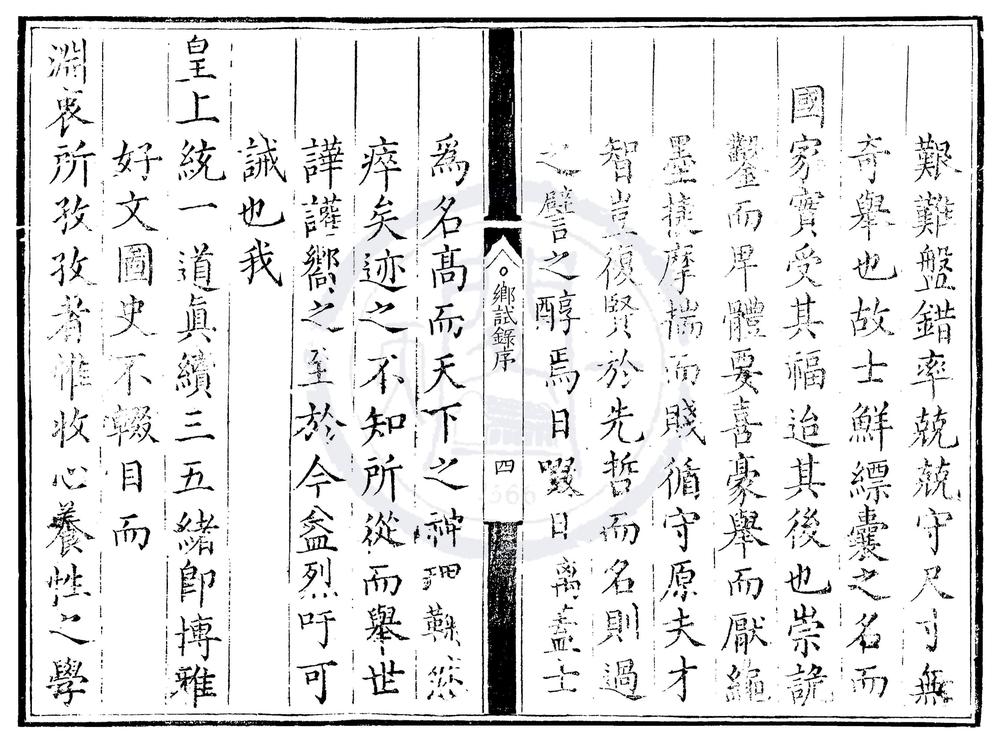 艱難盤錯率兢兢守尺寸無
奇舉也故士鮮縹囊之名而
國家實受其福迨其後也崇詭
鑿而卑體要喜豪舉而厭繩
墨揉摩揣而賤循守原夫才
智豈復賢於先哲而名則過
之譬言之醇焉日啜日漓蓋士
鄉試錄序
四
為名高而天下之神理蘇然
瘁矣迹之不知所從而舉世
譁讙嚮之至於今益烈吁可
誡也我
皇上統一道真纘三五緒即博雅
好文圖史不輟目而
淵衷所孜孜者惟收心養性之學